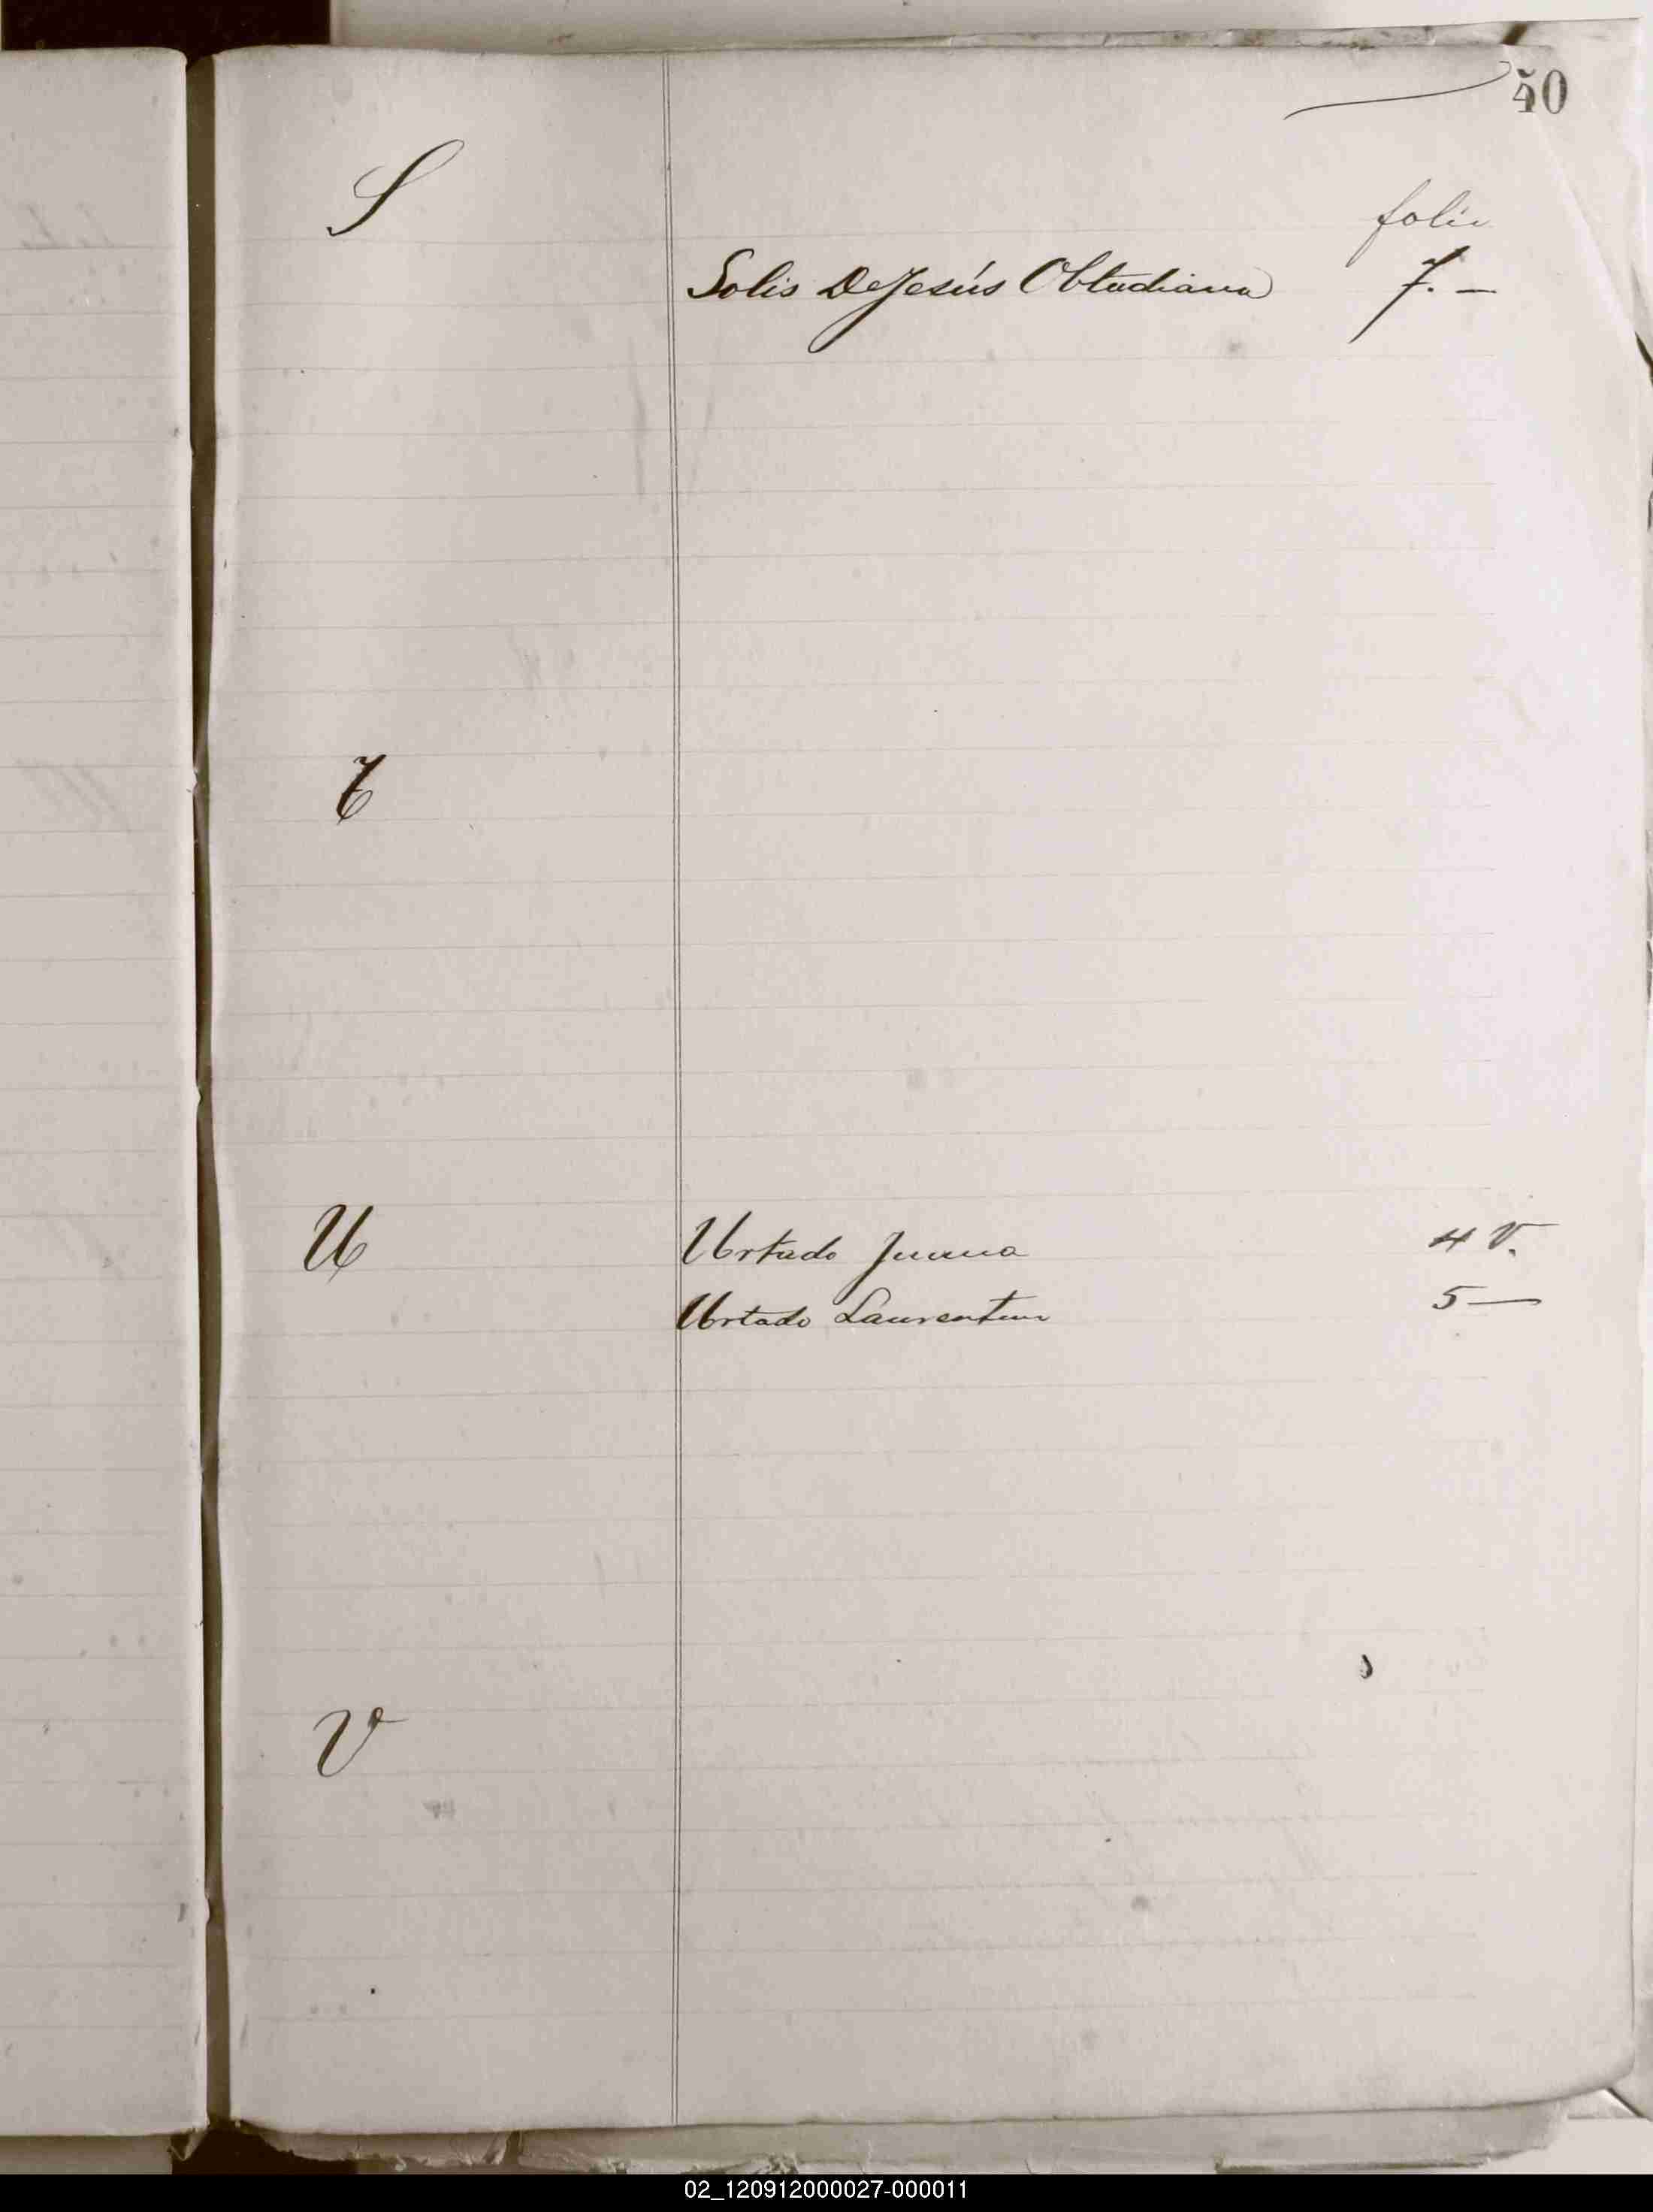 50
S
folio
Solis DeJesús Obtudiana 7. —
T
U
Urtado Juana 4 V.
Urtado Laurentin 5 —
V
02_120912000027-000011